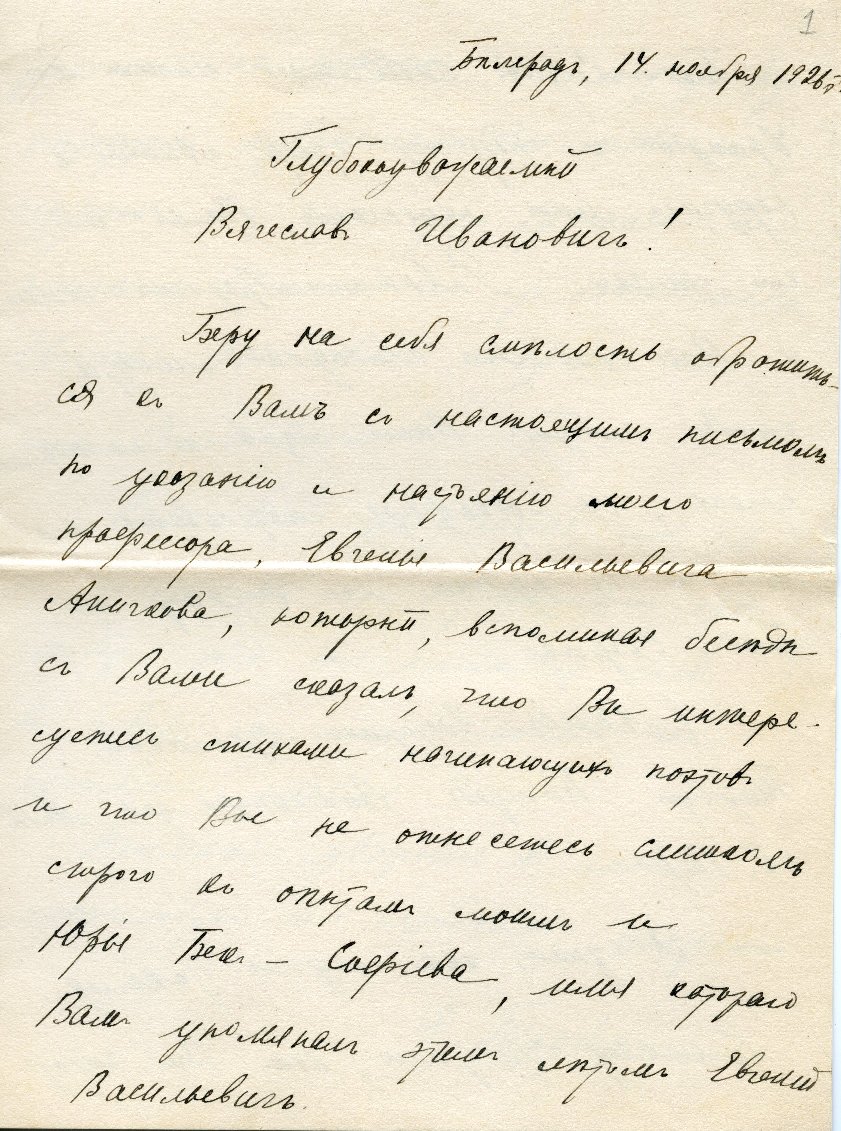 1
Бѣлградъ, 14. ноября 1926 г.
Глубокоуважаемый
Вячеславъ Ивановичъ!
Беру на себя смѣлость обратить-
ся къ Вамъ съ настоящимъ письмомъ
по указанію и настоянію моего
профессора, Евгенія Васильевича
Аничкова, который, вспоминая бесѣды
съ Вами сказалъ, что Вы интере-
суетесь стихами начинающихъ поэтовъ
и что Вы не отнесетесь слишкомъ
строго къ опытамъ моимъ и
Юрія Бек – Софіева, имя котораго
Вамъ упомяналъ этимъ лѣтомъ Евгеній
Васильевичъ.